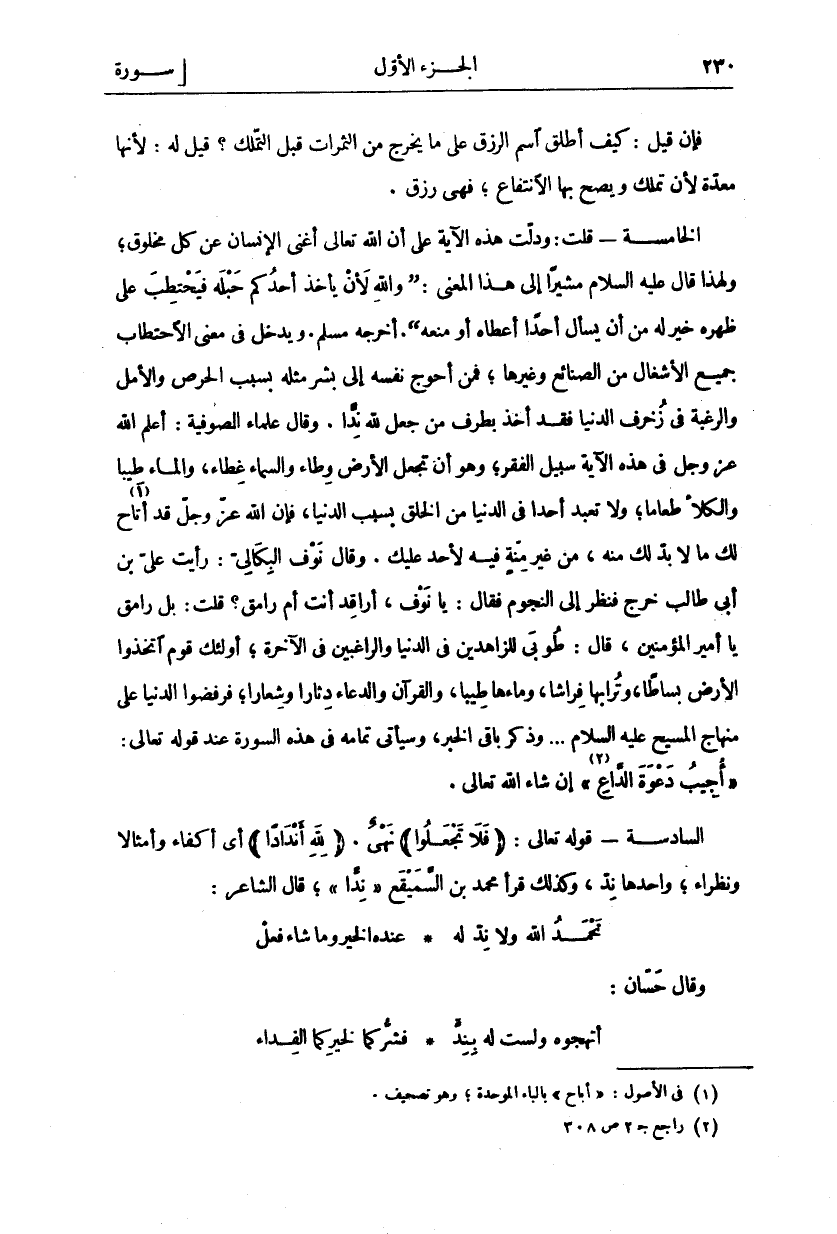 ٢٣٠ الجـــزء الأوّل [ ســـورة
فإن قيل : كيف أطلق آسم الرزق على ما يخرج من الثمرات قبل التملّك ؟ قيل له : لأنها
معدّة لأن تملك ويصح بها الآنتفاع ؛ فهى رزق .
الخامســـة – قلت : ودلّت هذه الآية على أن الله تعالى أغنى الإنسان عن كل مخلوق ؛
ولهذا قال عليه السلام مشيرًا إلى هـذا المعنى : ” والله لَأَنْ يأخذ أحدُكم حَبْلَه فيَحْتطِبَ على
ظهره خير له من أن يسأل أحدًا أعطاه أو منعه “ . أخرجه مسلم . ويدخل فى معنى الآحتطاب
جميـع الأشغال من الصنائع وغيرها ؛ فمن أحوج نفسه إلى بشر مثله بسبب الحرص والأمل
والرغبة فى زُخرف الدنيا فقـد أخذ بطرف من جعل لله نِدًّا . وقال علماء الصوفية : أعلم الله
عز وجل فى هذه الآية سبيل الفقر ؛ وهو أن تجعل الأرض وِطاء والسماء غِطاء ، والمـاء طِيبا
والكلأ طعاما ؛ ولا تعبد أحدا فى الدنيا من الخلق بسبب الدنيا ، فإن الله عزّ وجلّ قد أتاح (١)
لك ما لا بدّ لك منه ، من غير مِنّةٍ فيـه لأحد عليك . وقال نَوْف البِكَالِىّ : رأيت علىّ بن
أبي طالب خرج فنظر إلى النجوم فقال : يا نَوْف ، أراقِد أنت أم رامق ؟ قلت : بل رامق
يا أمير المؤمنين ، قال : طُوبَى للزاهدين فى الدنيا والراغبين فى الآخرة ؛ أولئك قوم آتخذوا
الأرض بساطًا ، وتُرابها فِراشا ، وماءها طِيبا ، والقرآن والدعاء دِثارا وشِعارا ؛ فرفضوا الدنيا على
منهاج المسيح عليه السلام ... وذكر باقى الخبر ، وسيأتى تمامه فى هذه السورة عند قوله تعالى :
« أُجِيبُ دَعْوَةَ الدَّاعِ (٢) » إن شاء الله تعالى .
السادســـة – قوله تعالى : ﴿ فَلَا تَجْعَـلُوا ﴾ نَهْىٌ . ﴿ لِلهِ أَنْدَادًا ﴾ أى أكفاء وأمثالا
ونظراء ؛ واحدها نِدّ ، وكذلك قرأ محمد بن السَّمَيْقَع « نِدًّا » ؛ قال الشاعر :
نَحْمَـــدُ الله ولا نِدّ له * عنده الخير وما شاء فعلْ
وقال حَسّان :
أتهجوه ولست له بِنِدٍّ * فشرُّكما لخيرِكما الفِــداء
(١) فى الأصول : « أباح » بالباء الموحدة ؛ وهو تصحيف .
(٢) راجع جـ ٢ ص ٣٠٨